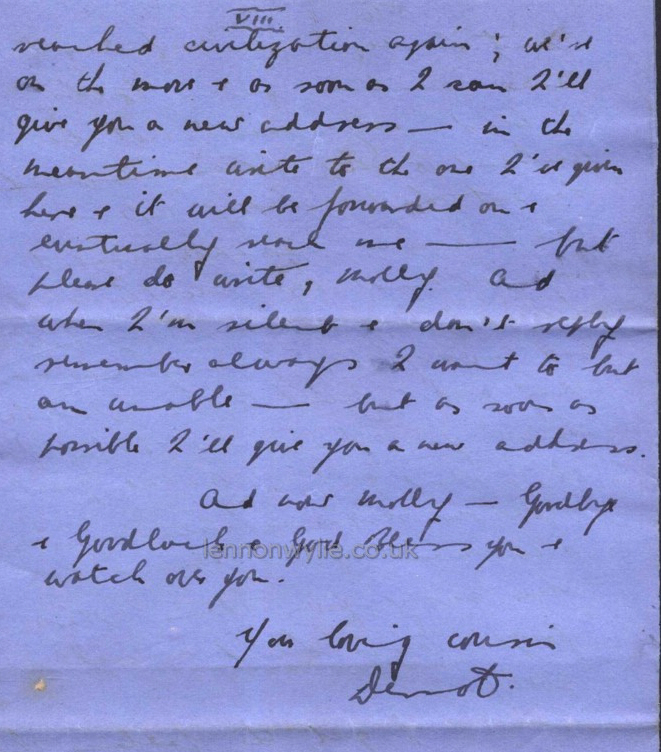 VIII
reached civilization again; we're
on the move & as soon as I can I'll
give you a new address — in the
meantime write to the one I've given
here & it will be forwarded on &
eventually reach me — but
please do write, Molly. And
when I'm silent & don't reply
remember always I want to but
am unable — but as soon as
possible I'll give you a new address.
And now Molly — Goodbye
& Goodluck & God Bless you &
lennonwylie.co.uk
watch over you.
Your loving cousin
Dermot.